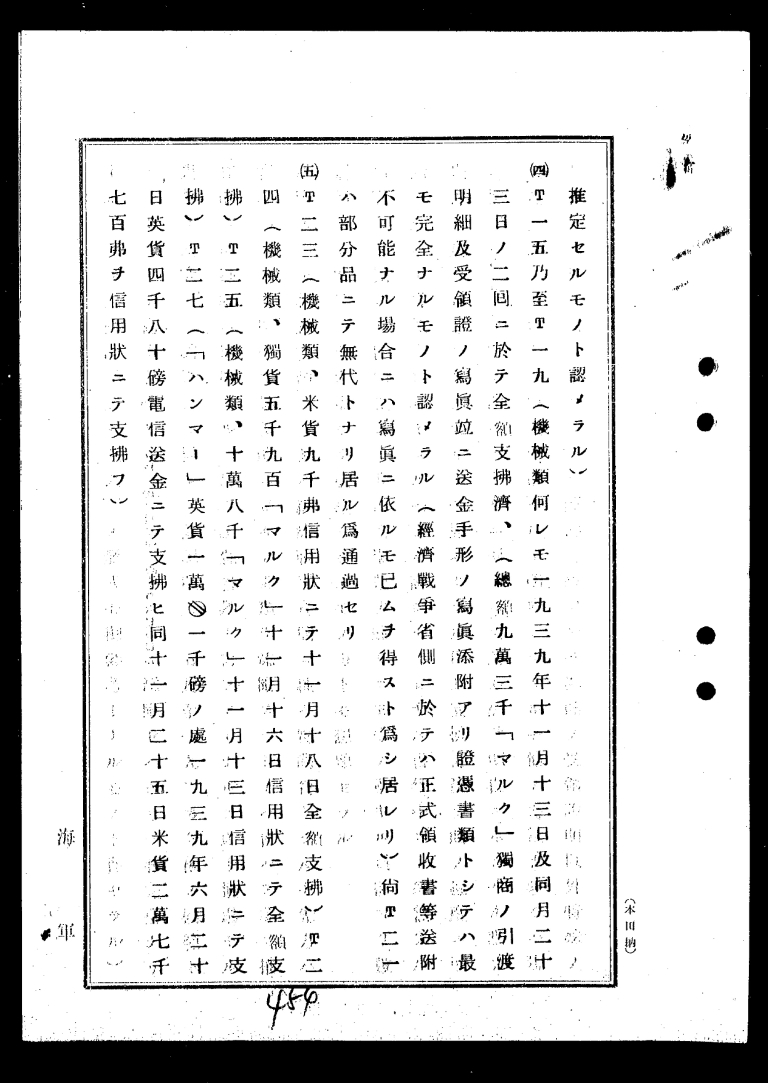 推定セルモノト認メラル)
㈣T一五乃至T一九(機械類何レモ一九三九年十一月十三日及同月二十
三日ノ二回ニ於テ全額支拂濟、(總額九萬三千「マルク」獨商ノ引渡
明細及受領證ノ寫眞竝ニ送金手形ノ寫眞添附アリ證憑書類トシテハ最
モ完全ナルモノト認メラル(經濟戰爭省側ニ於テハ正式領收書等送附
不可能ナル場合ニハ寫眞ニ依ルモ已ムヲ得スト爲シ居レリ)尙T二一
ハ部分品ニテ無代トナリ居ル爲通過セリ
㈤T二三(機械類、米貨九千弗信用狀ニテ十一月十八日全額支拂)T二
四(機械類、獨貨五千九百「マルク」十一月十六日信用狀ニテ全額支
拂)T二五(機械類、十萬八千「マルク」十一月十三日信用狀ニテ支
拂)T二七(「ハンマー」英貨一萬一千磅ノ處一九三九年六月二十
日英貨四千八十磅電信送金ニテ支拂ヒ同十一月二十五日米貨二萬七千
七百弗ヲ信用狀ニテ支拂フ)
海軍
(本田納)
456